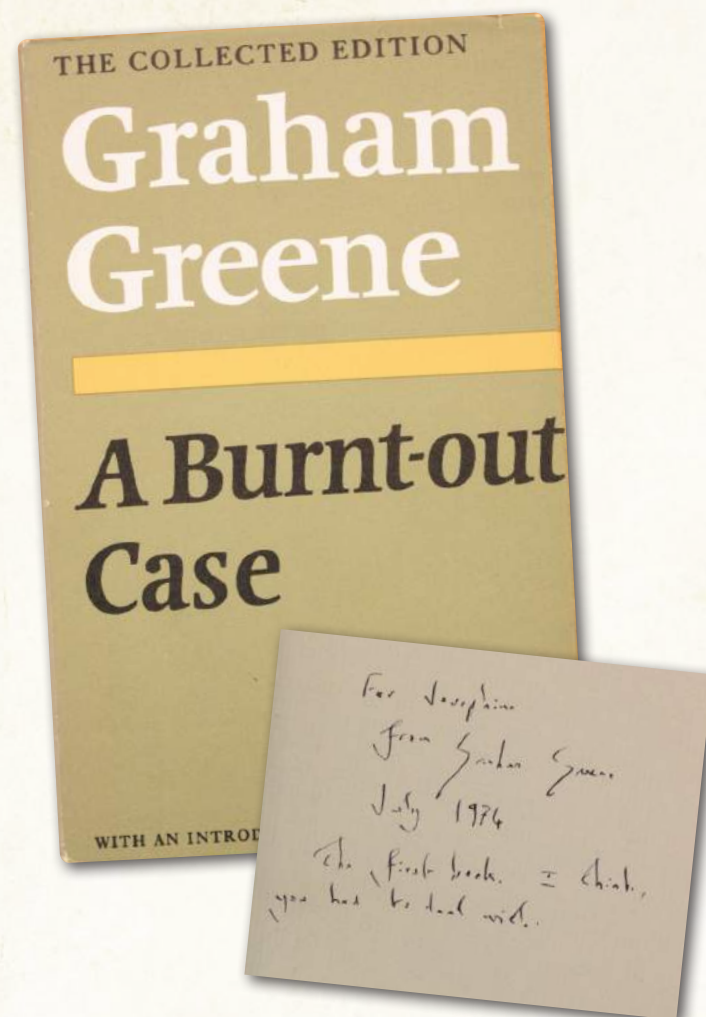 THE COLLECTED EDITION
Graham
Greene
A Burnt-out
Case
WITH AN INTROD
For Josephine
from Graham Greene
July 1974
The first book. I think,
you had to deal with.